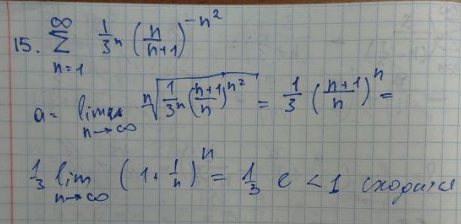 15. ∑_{n=1}^{∞} 1/3^n (n/(n+1))^{-n^2}
a = lim_{n→∞} ⁿ√(1/3^n ((n+1)/n)^{n^2}) = 1/3 ((n+1)/n)^n =
1/3 lim_{n→∞} (1 + 1/n)^n = 1/3 e < 1 сходится